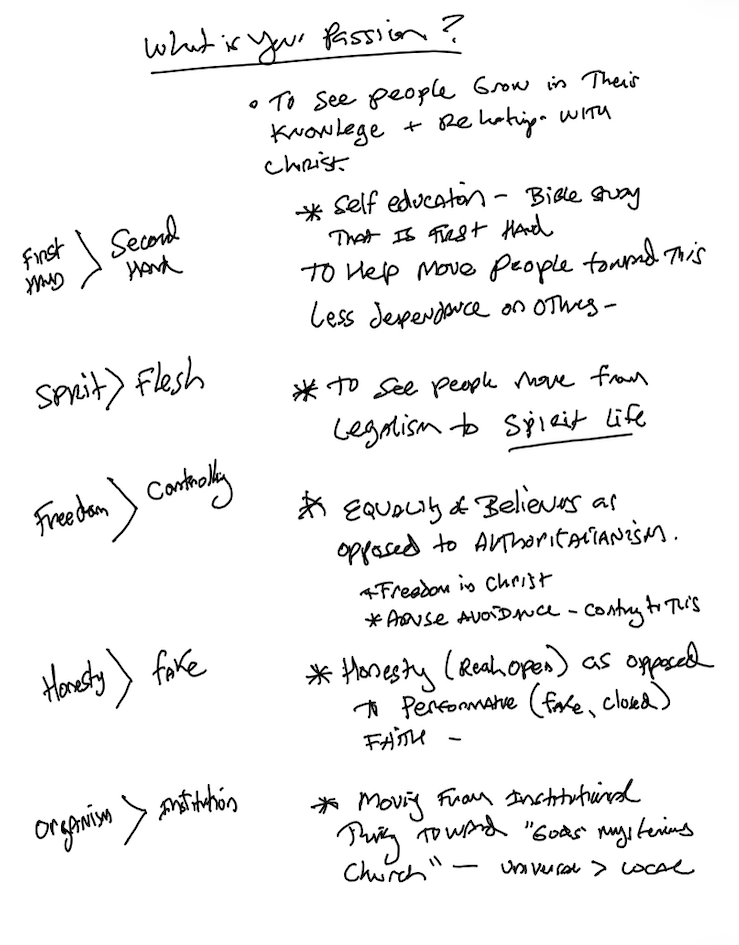 What is Your Passion?
• To See people Grow in Their
Knowlege + Relationp. with
Christ.
First Hand > Second Hand
* Self education - Bible study
That Is First Hand
To Help Move People toward This
Less dependance on others -
Spirit > Flesh
* To See people Move from
Legalism to Spirit Life
Freedom > Controlly
* Equality of Believers as
opposed to Authoritarianism.
+ Freedom in Christ
* Abuse Avoidance - Contry to This
Honesty > fake
* Honesty (Real, open) as opposed
To Performative (fake, closed)
Faith -
Organism > Institution
* Moving From Institutional
Thing Toward "Gods mysterious
Church" - Universal > Local